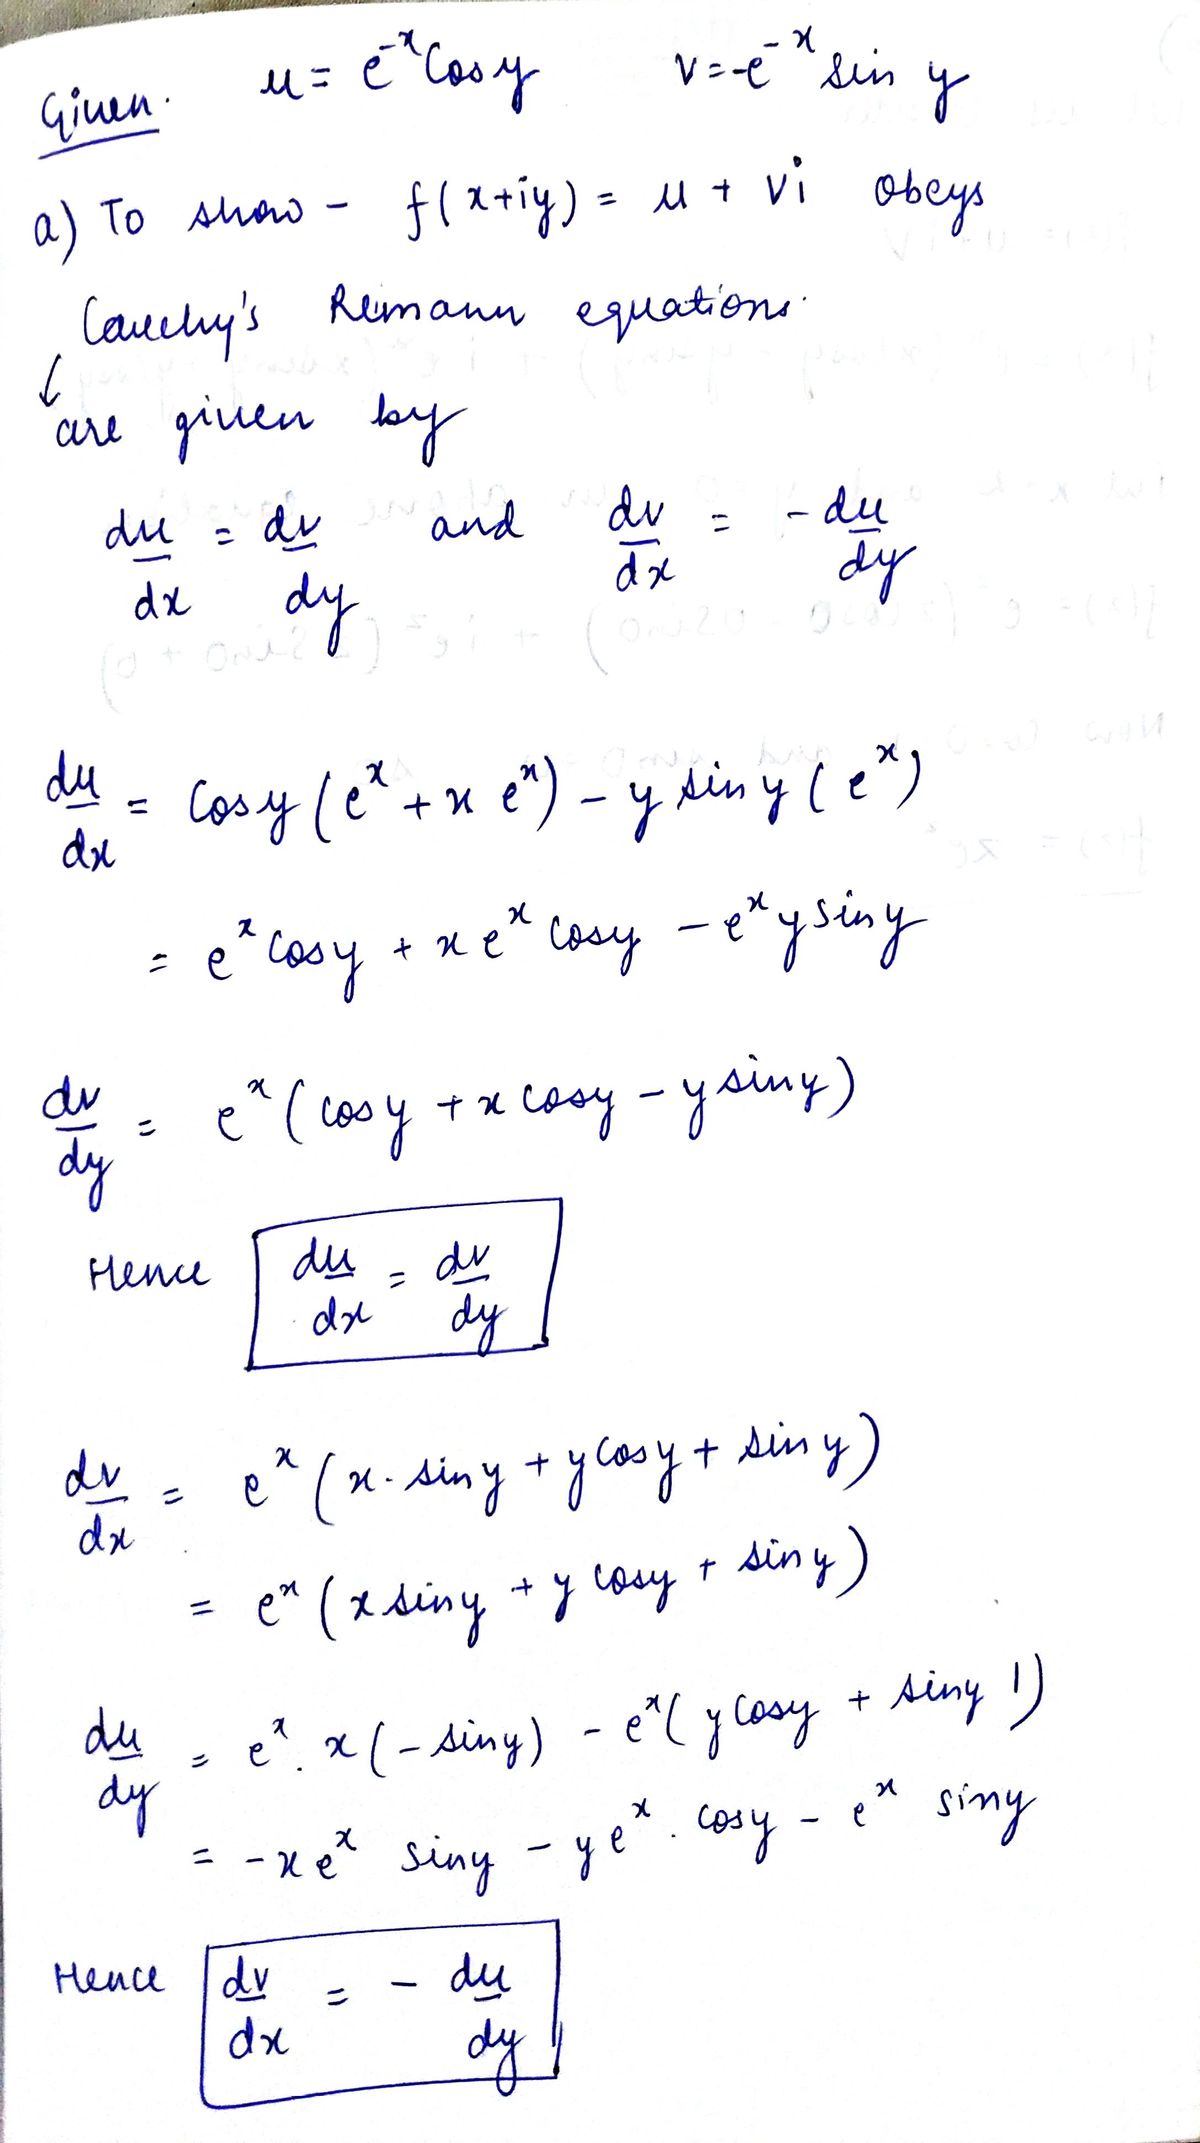 Given. u = e^-x Cosy v = -e^-x sin y
a) To show - f(x+iy) = u + vi obeys
Cauchy's Remann equations.
↓
are given by
du/dx = dv/dy and dv/dx = - du/dy
du/dx = Cosy (e^x + x e^x) - y siny (e^x)
= e^x cosy + x e^x cosy - e^x y siny
dv/dy = e^x (cosy + x cosy - y siny)
Hence du/dx = dv/dy
dv/dx = e^x (x. siny + y cosy + siny)
= e^x (x siny + y cosy + siny)
du/dy = e^x. x (- siny) - e^x (y cosy + siny 1)
= -x e^x siny - y e^x. cosy - e^x siny
Hence dv/dx = - du/dy